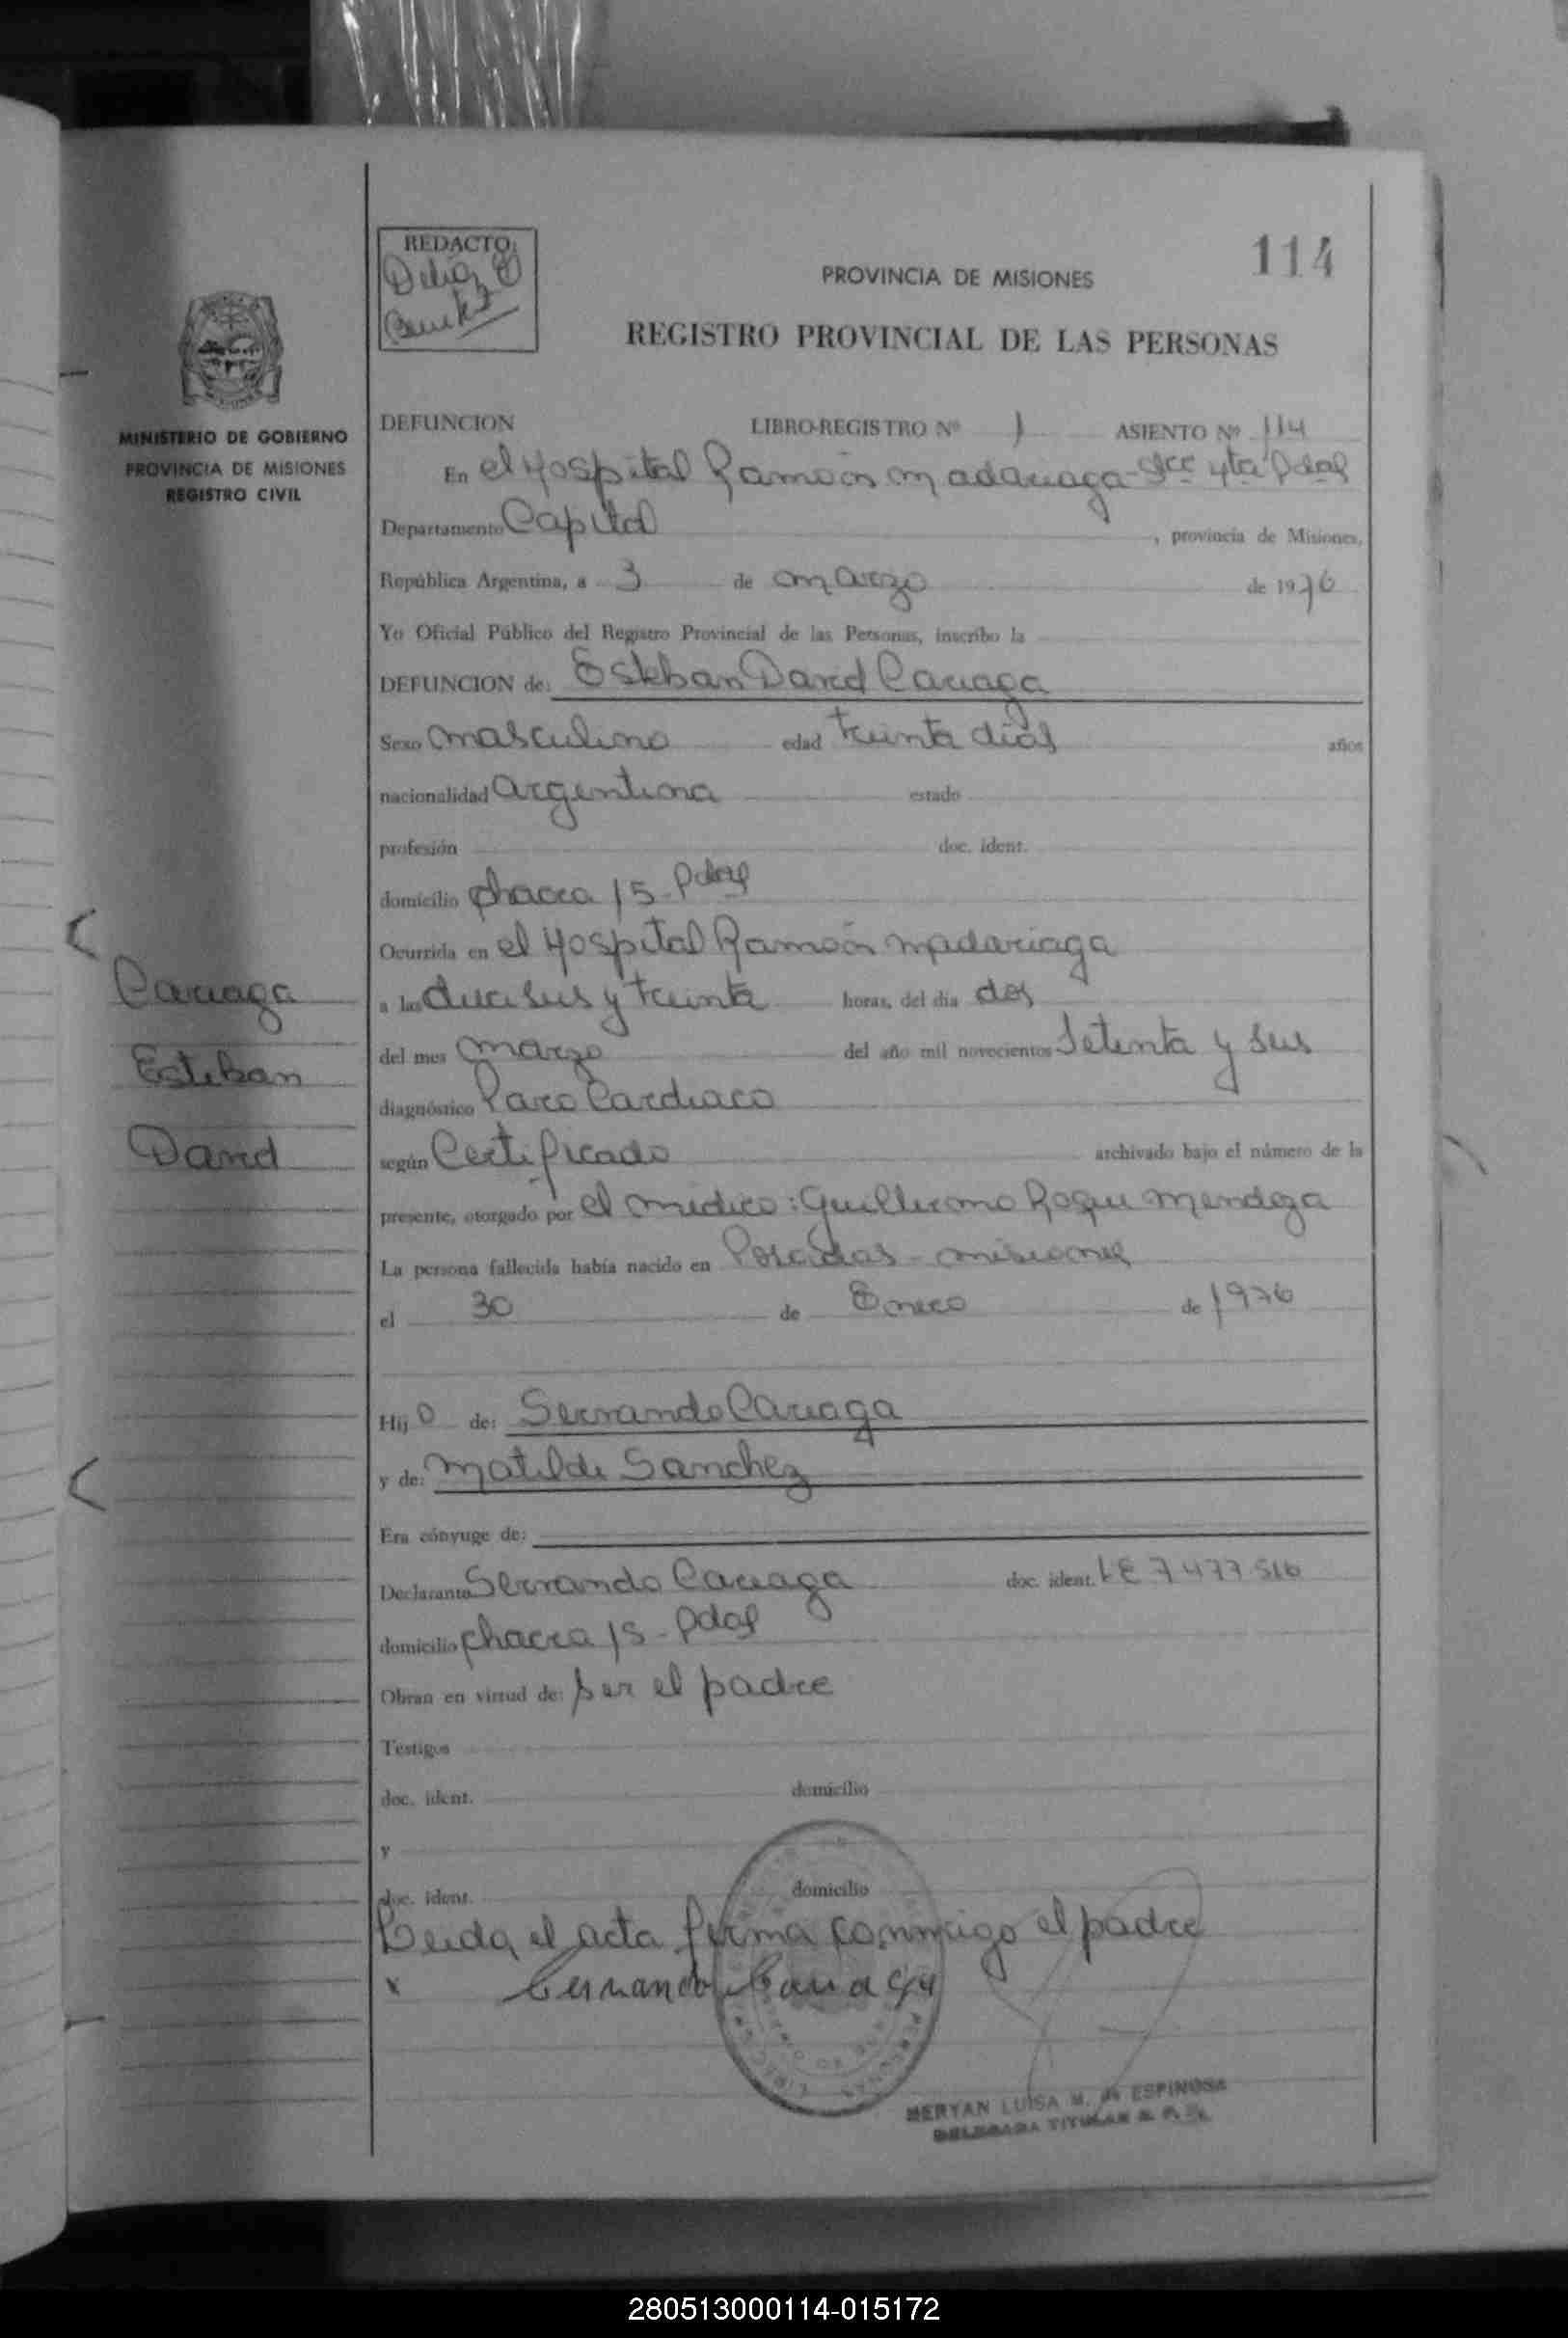 REDACTO:
114
PROVINCIA DE MISIONES
REGISTRO PROVINCIAL DE LAS PERSONAS
MINISTERIO DE GOBIERNO
PROVINCIA DE MISIONES
REGISTRO CIVIL
DEFUNCION LIBRO-REGISTRO Nº 1 ASIENTO Nº 114
En el Hospital Ramón Madariaga - Scc 4ta Pdas
Departamento Capital, provincia de Misiones,
República Argentina, a 3 de marzo de 1976
Yo Oficial Público del Registro Provincial de las Personas, inscribo la
DEFUNCION de: Esteban David Cariaga
Sexo masculino edad treinta días años
nacionalidad argentina estado
profesión doc. ident.
domicilio chacra 15 - Pdas
Ocurrida en el Hospital Ramón Madariaga
a las dieciseis y treinta horas, del día dos
del mes marzo del año mil novecientos Setenta y seis
diagnóstico Paro Cardiaco
según Certificado archivado bajo el número de la
presente, otorgado por el medico: Guillermo Roque Mendoza
La persona fallecida había nacido en Posadas - misiones
el 30 de Enero de 1976
Hijo de: Sernando Cariaga
y de: Matilde Sanchez
Era cónyuge de:
Declarante Sernando Cariaga doc. ident. LE 7477516
domicilio chacra 15 - Pdas
Obran en virtud de: ser el padre
Testigos
doc. ident. domicilio
y
doc. ident. domicilio
Leida el acta firma conmigo el padre
x Cernando Cariaga
Cariaga
Esteban
David
MERYAN LUISA M. de ESPINOSA
DELEGADA TITULAR R. P. P.
280513000114-015172